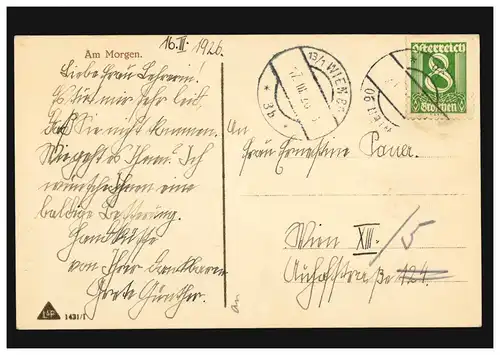 16.III. 1926.
Am Morgen.
Liebe Frau Lehrerin!
Es tut mir sehr leid,
daß Sie nicht kommen.
Wie geht es Ihnen? Ich
wünsche Ihnen eine
baldige Besserung.
Handküsse
von Ihrer dankbaren
Grete Günther.
LP
1431/1
13/1 WIEN 89
17. III. 26
* 3b *
Österreich
8
Groschen
An
Frau Ernestine Pauer.
Wien XIII./5
Auhofstraße 124.
An